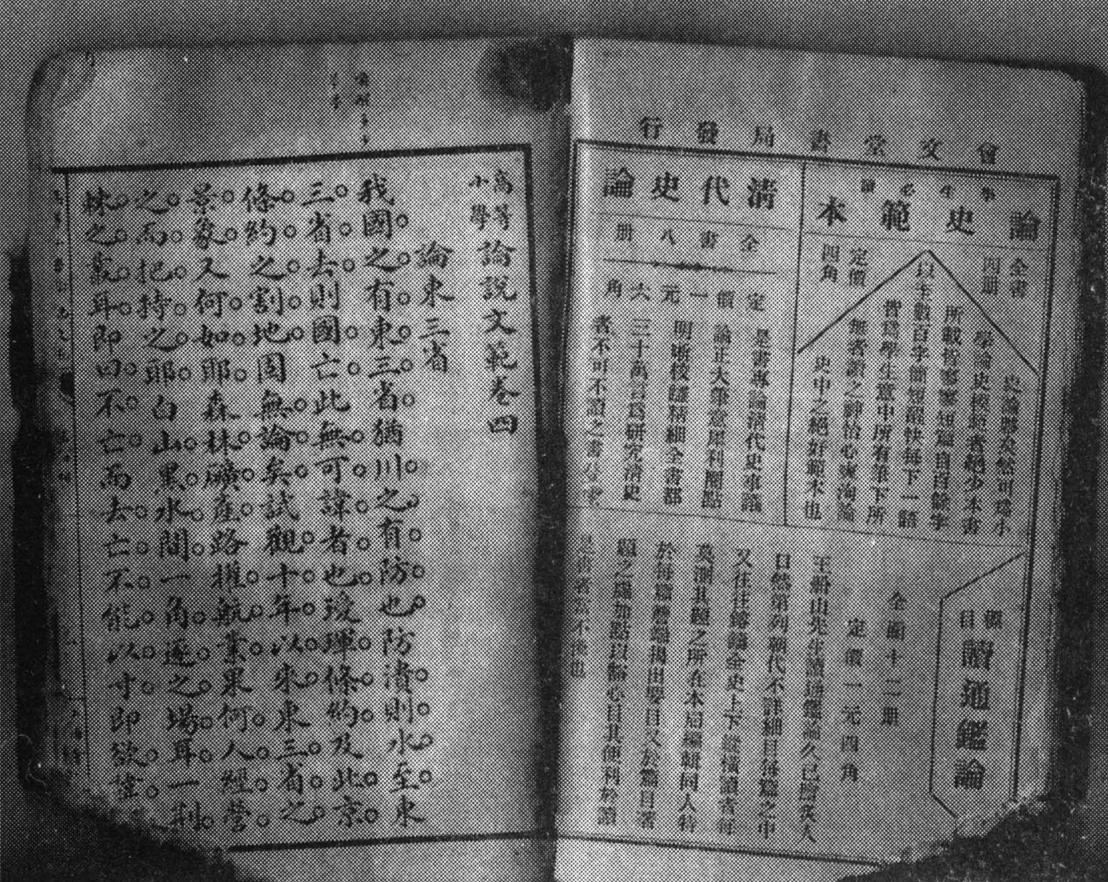 會文堂書局發行
論史範本
全書四册
定價四角
所載皆寥寥短篇自百餘字
以至數百字簡短醒快每下一語
皆爲學生意中所有筆下所
無者讀之神怡心爽洵論
史中之絕好範本也
清代史論
全書八册
定價一元六角
是書專論清代史事議
論正大筆意犀利圈點
明晰校讎精細全書都
三十萬言爲研究清史
者不可不讀之書
標目
讀通鑑論
全圖十二册
定價一元四角
王船山先生讀通鑑論久已膾炙人
口然第列朝代不詳細目每篇之中
又往往鎔鑄全史上下縱橫讀者每
莫測其題之所在本局編輯同人特
於每篇簷端揭出要目又於篇目著
題之處加點以豁心目其便利於讀
是書者當不淺也
高等小學論說文範卷四
論東三省
我國之有東三省猶川之有防也防潰則水至東
三省去則國亡此無可諱者也璦琿條約及北京
條約之割地固無論矣試觀十年以來東三省之
景象又何如耶森林礦產路權航業果何人經營
之而把持之耶白山黑水間一角逐之場耳一刹
不亡而去亡不能以寸即欲